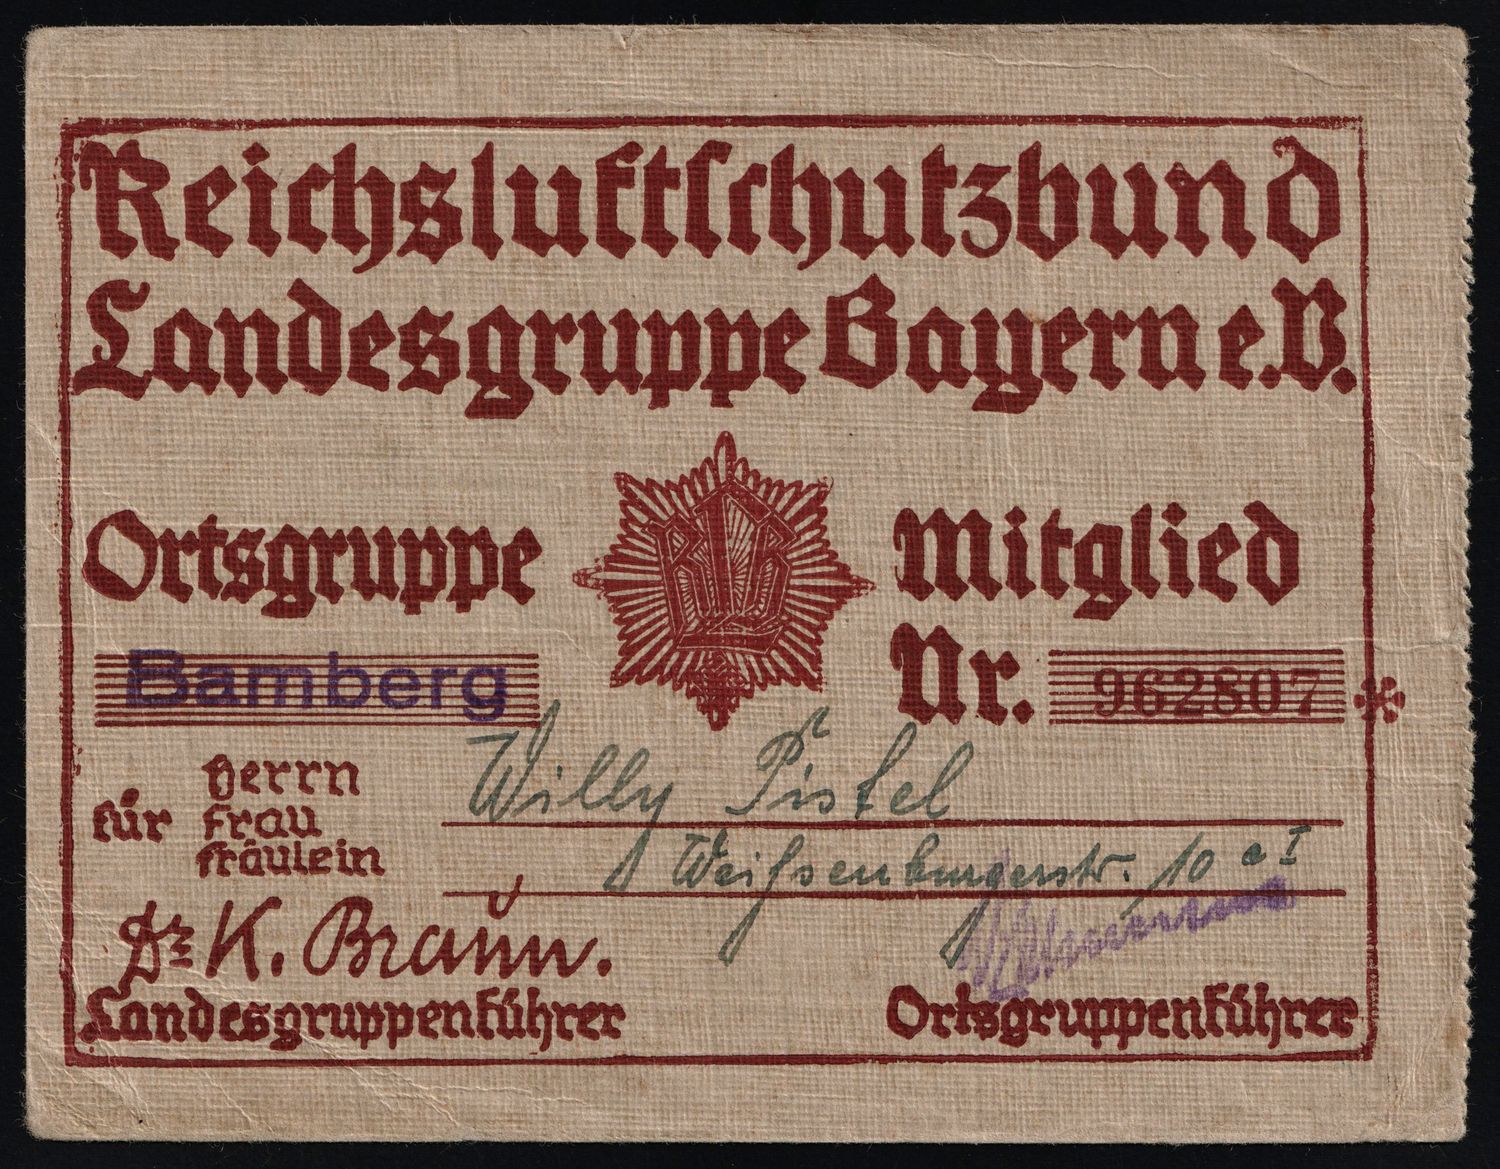 Reichsluftschutzbund
Landesgruppe Bayern e.V.
Ortsgruppe
Bamberg
RLB
Mitglied
Nr. 962807
für Herrn
Frau
Fräulein
Willy Pistel
Weißenburgerstr. 10 a I
Dr. K. Braun.
Landesgruppenführer
Ortsgruppenführer